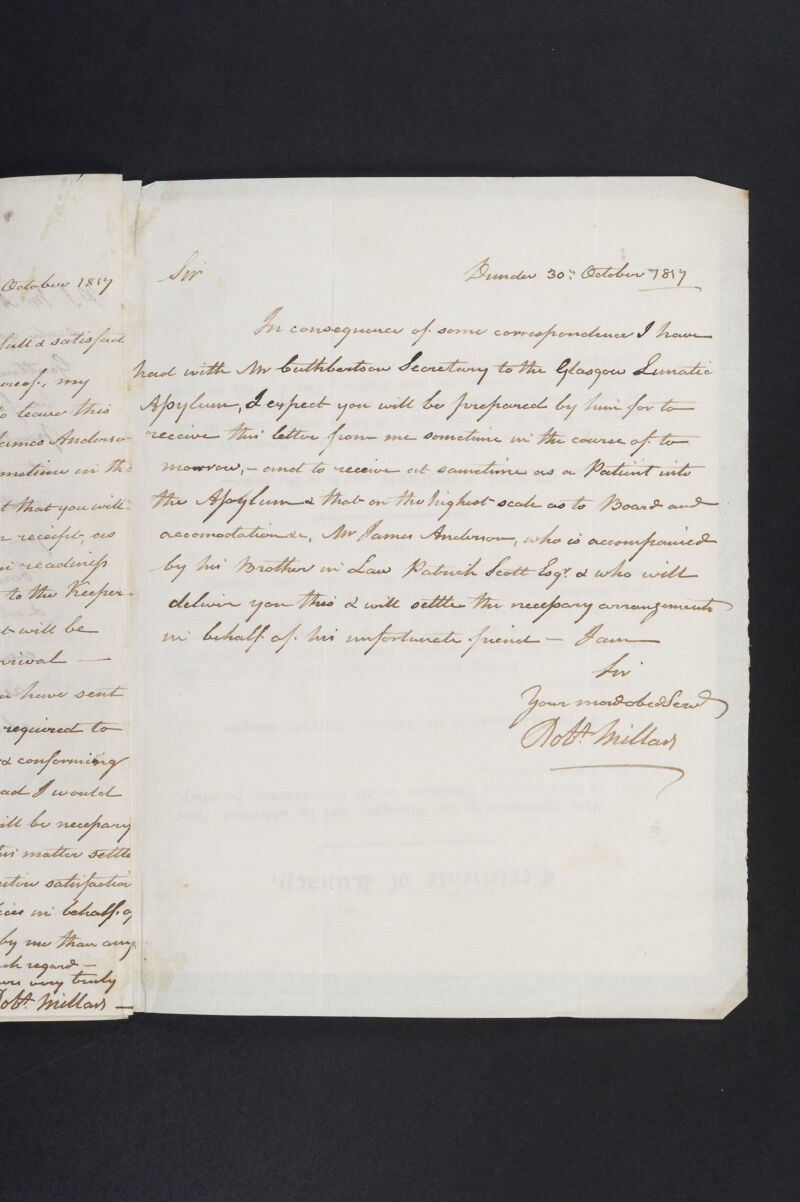 October 1817
full & satisfact
hereof, my
to leave this
James Anderson
sometime in the
t that you will
receipt, as
in readiness
to the Keeper
t will be
rrival —
u have sent
required to
& conforming
ad I would
ill be necessary
this matter settle
entire satisfaction
ices in behalf of
by me than any
ch regard —
urs very truly
Robt. Millar —
Sir Dundee 30th. October 1817
In consequence of some correspondence I have
had with Mr Cuthbertson Secretary to the Glasgow Lunatic
Asylum, I expect you will be prepared by him for to
receive this letter from me sometime in the course of to
morrow, – and to receive at sametime as a Patient into
the Asylum & that on the highest scale as to Board and
accomodation &c, Mr James Anderson, who is accompanied
by his Brother in Law Patrick Scott Esqr. & who will
deliver you this & will settle the necessary arrangements
in behalf of his unfortunate friend – I am
Sir
Your most obed Servt
Robt. Millar